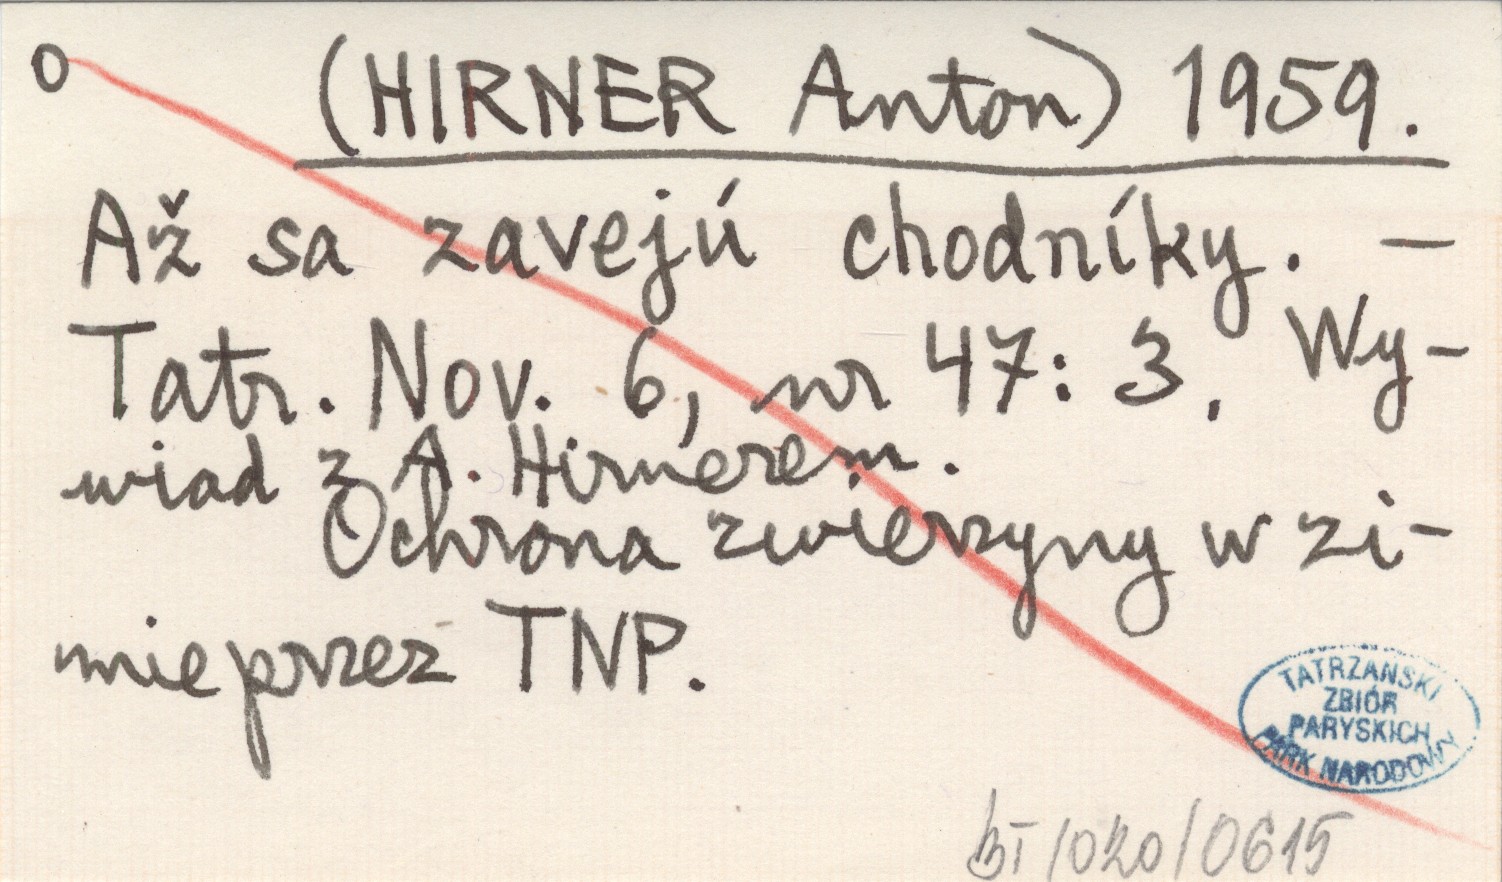 o (HIRNER Anton) 1959.
Až sa zavejú chodníky. —
Tatr. Nov. 6, nr 47: 3. Wy-
wiad z A. Hirnerem.
Ochrona zwierzyny w zi-
mie przez TNP.
TATRZAŃSKI
ZBIÓR
PARYSKICH
PARK NARODOWY
BT/020/0615